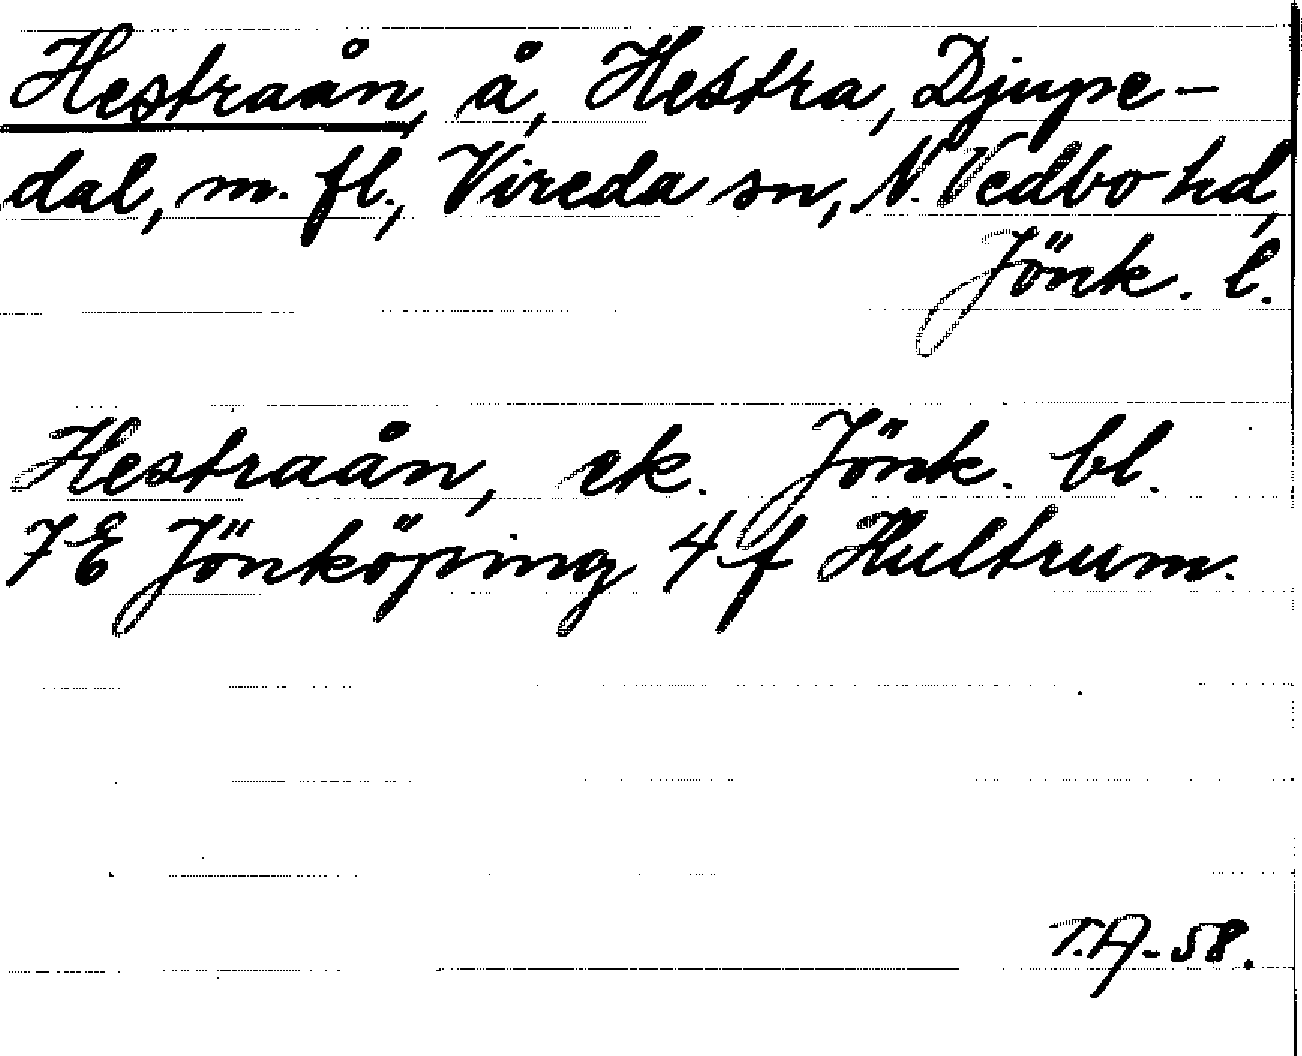 Hestraån, å, Hestra, Djupe-
dal, m. fl., Vireda sn, N. Vedbo hd,
Jönk. l.
Hestraån, ek. Jönk. bl.
7E Jönköping 4f Hultrum.
T.A-58.